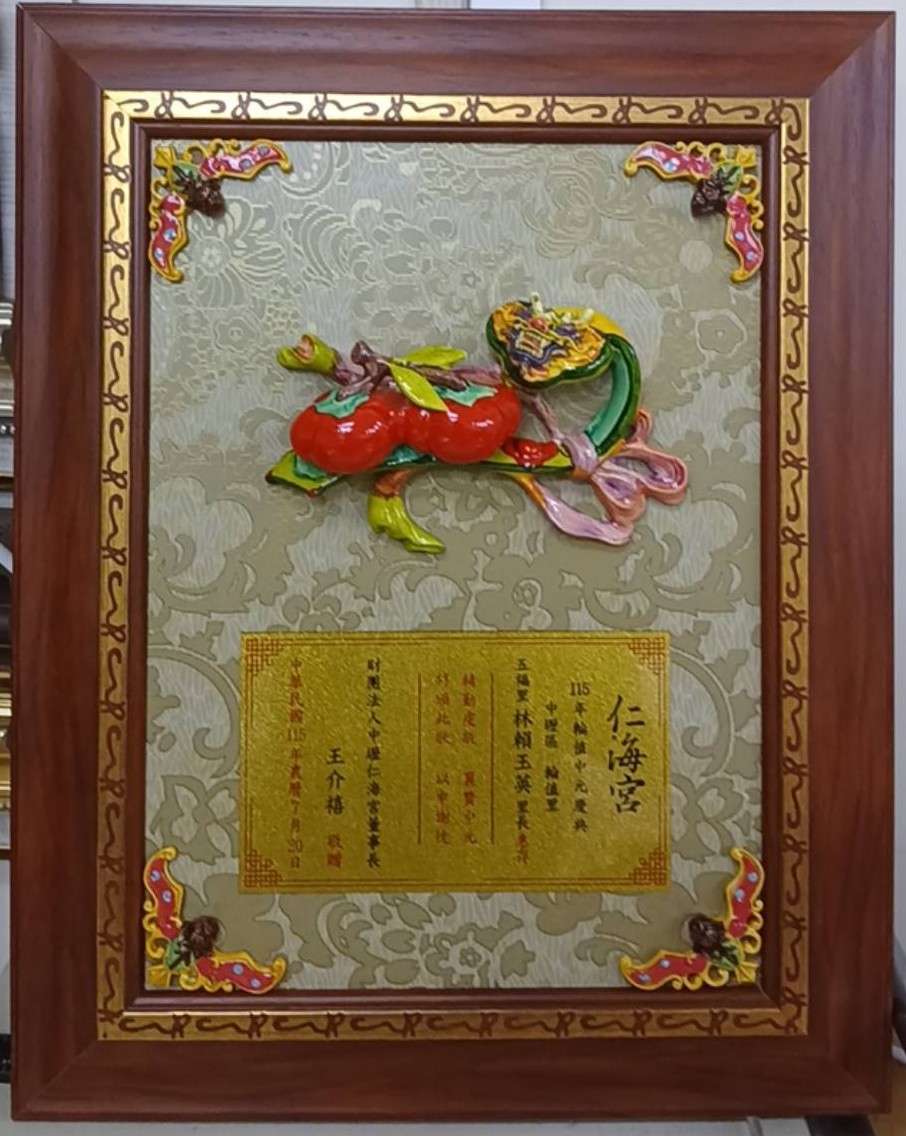 仁海宮
115年輪值中元慶典
中壢區 輪值里
五福里 林賴玉英 里長 惠存
輔勤虔敬 翼贊中元
特頒此狀 以申謝忱
財團法人中壢仁海宮董事長
王介禧 敬贈
中華民國115年農曆7月20日